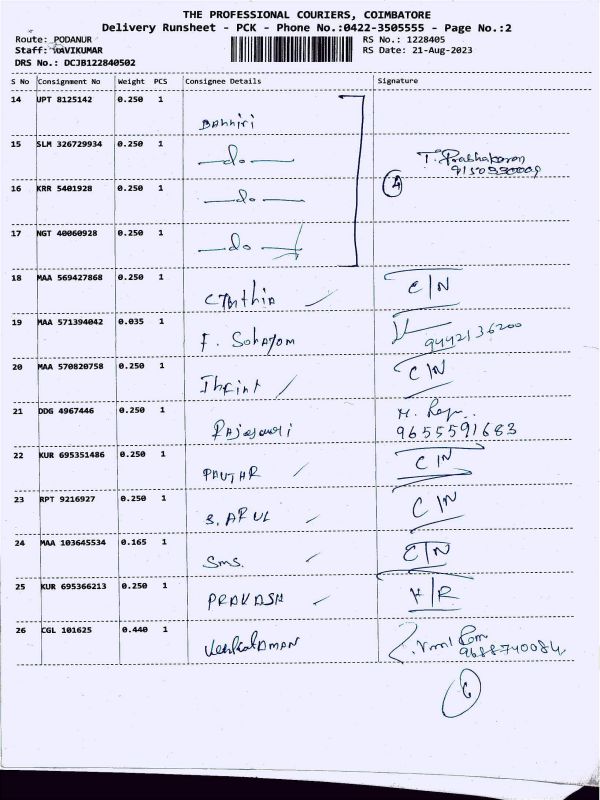 THE PROFESSIONAL COURIERS, COIMBATORE
Delivery Runsheet - PCK - Phone No.:0422-3505555 - Page No.:2
Route: PODANUR RS No.: 1228405
Staff: RAVIKUMAR RS Date: 21-Aug-2023
DRS No.: DCJB122840502
S No Consignment No Weight PCS Consignee Details Signature
14 UPT 8125142 0.250 1
15 SLM 326729934 0.250 1 —do— T. Prabhakaran
16 KRR 5401928 0.250 1 —do— 4
17 NGT 40060928 0.250 1 —do—
18 MAA 569427868 0.250 1 Cynthia C/N
19 MAA 571394042 0.035 1 9442136200
20 MAA 570820758 0.250 1 C/N
21 DDG 4967446 0.250 1 Rajeswari
9655591683
22 KUR 695351486 0.250 1 C/N
23 RPT 9216927 0.250 1 S. ARUL C/N
24 MAA 103645534 0.165 1 Sms. C/N
25 KUR 695366213 0.250 1 PRAKASH
26 CGL 101625 0.440 1 VenkatAMAN
9688740084
6